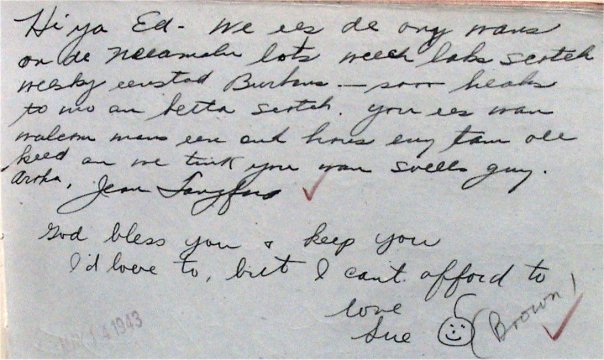 Hi'ya Ed - We ees de ony wans
on de Neeamahu lots weech laks scotch
weesky eenstad Burbons — sooo heaks
to mo an betta scotch. You ees wan
walcom mans een aud hows eny tam ole
keed an we tink you wan swells guy.
Aroha, Jean
God bless you & keep you
I'd love to, but I can't afford to
love
Sue (Brown)
14 1943